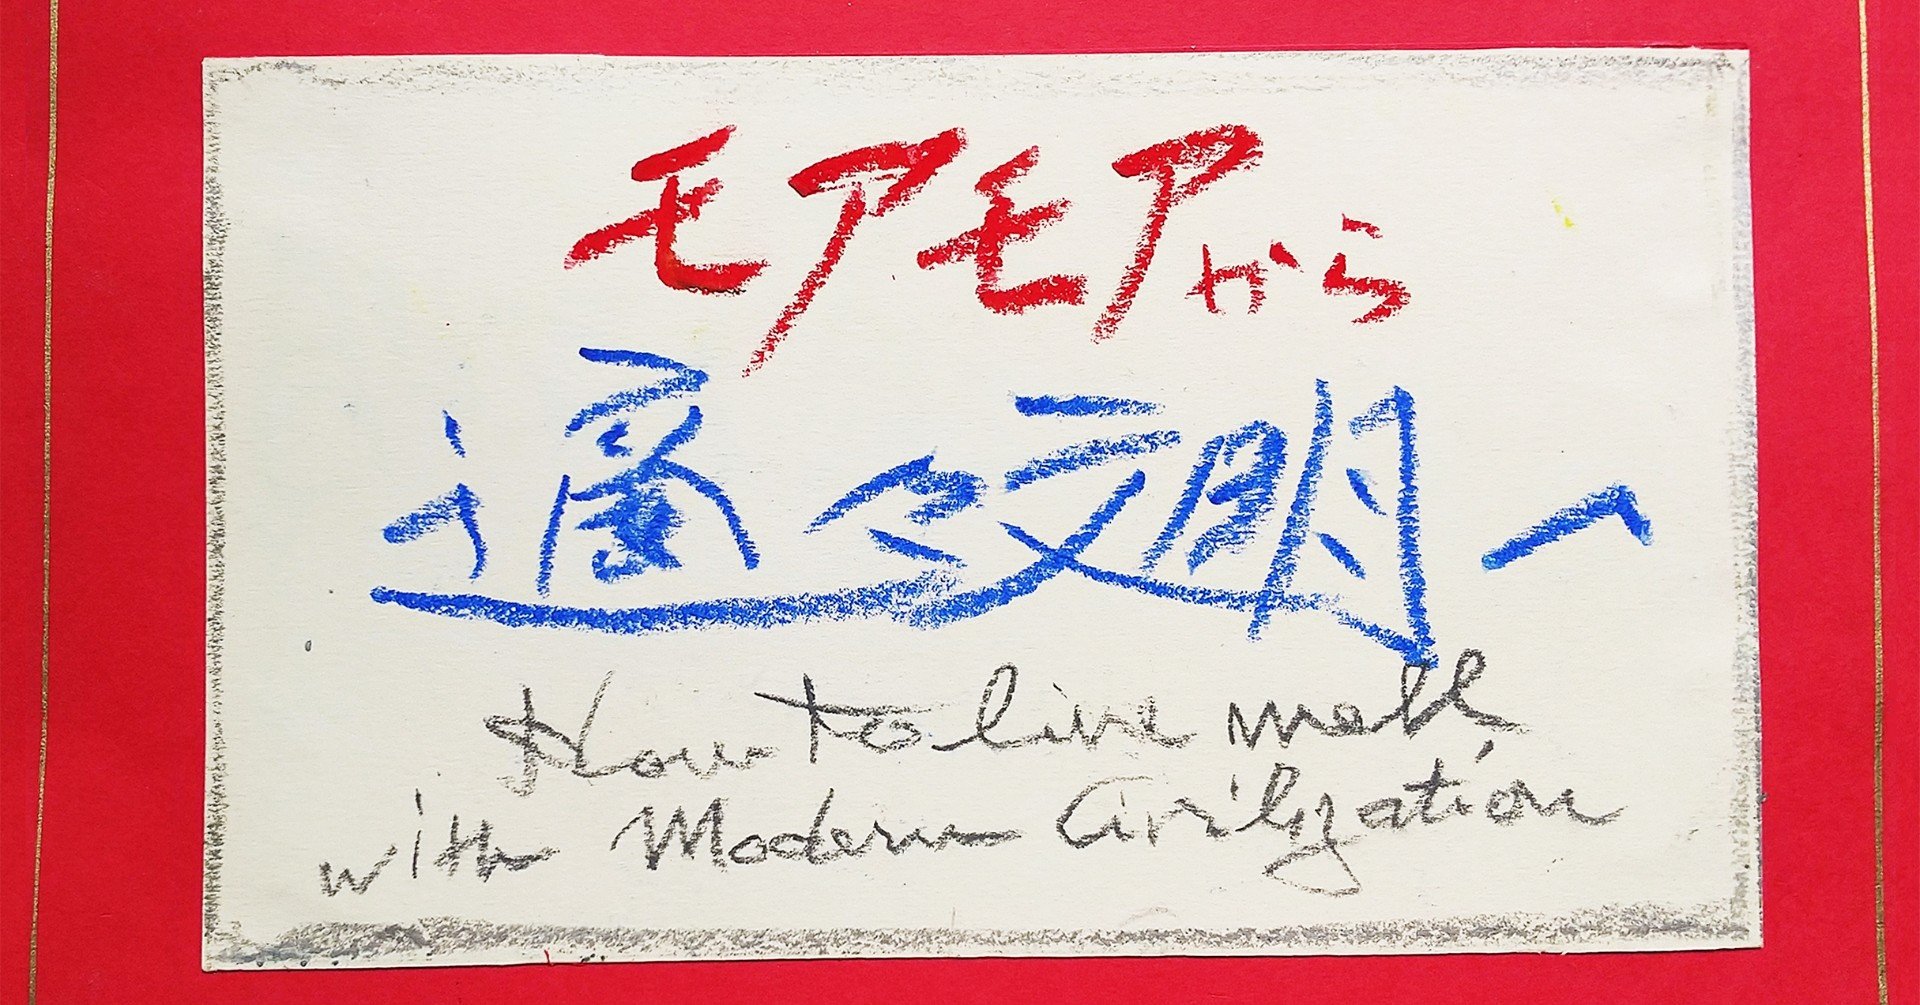 モアモアから
適々文明へ
How to live well
with Modern Civilization